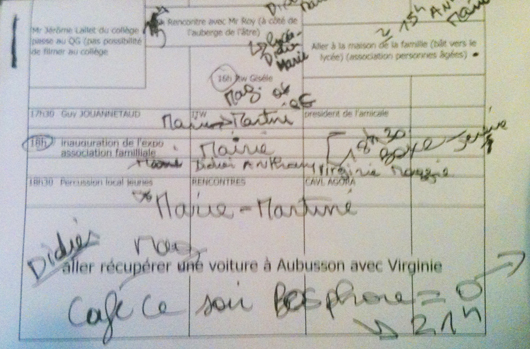 Rencontre avec Mr Roy (à côté de
l'auberge de l'âtre)
Mr Jérôme Laillet du collège
passe au QG (pas possibilité
de filmer au collège
15h
Aller à la maison de la famille (bât vers le
lycée) (association personnes âgées)
Didier
Marie
16h Itw Gisèle
Mag. QG
17h30 Guy JOUANNETAUD
ITW
président de l'amicale
Martine
18h
inauguration de l'expo
association familliale
Mairie
Didier Anthony
Virginie
18h30
Boxe
18h30 Percussion local jeunes
RENCONTRES
CAVL AGORA
Marie - Martine
Didier
aller récupérer une voiture à Aubusson avec Virginie
Café ce soir Bosphore = 0
→ 21h